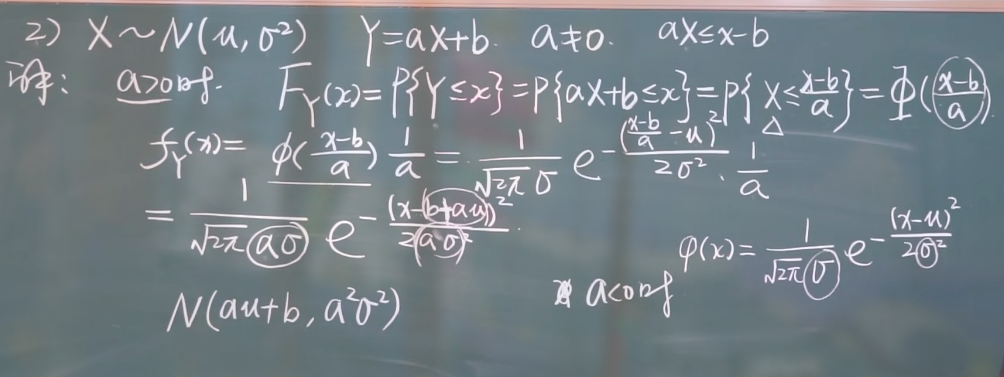 2) X~N(u,σ²) Y=aX+b. a≠0. aX≤x-b
解: a>0时. F_Y(x)=P{Y≤x}=P{aX+b≤x}=P{X≤(x-b)/a}=Φ((x-b)/a)
f_Y(x)=φ((x-b)/a)·1/a=1/(√2π σ) e^{-((x-b)/a-u)²/2σ²}·1/a
=1/(√2π(aσ)) e^{-(x-(b+au))²/2(aσ)²}.
φ(x)=1/(√2π σ) e^{-(x-u)²/2σ²}
N(au+b,a²σ²) a<0时